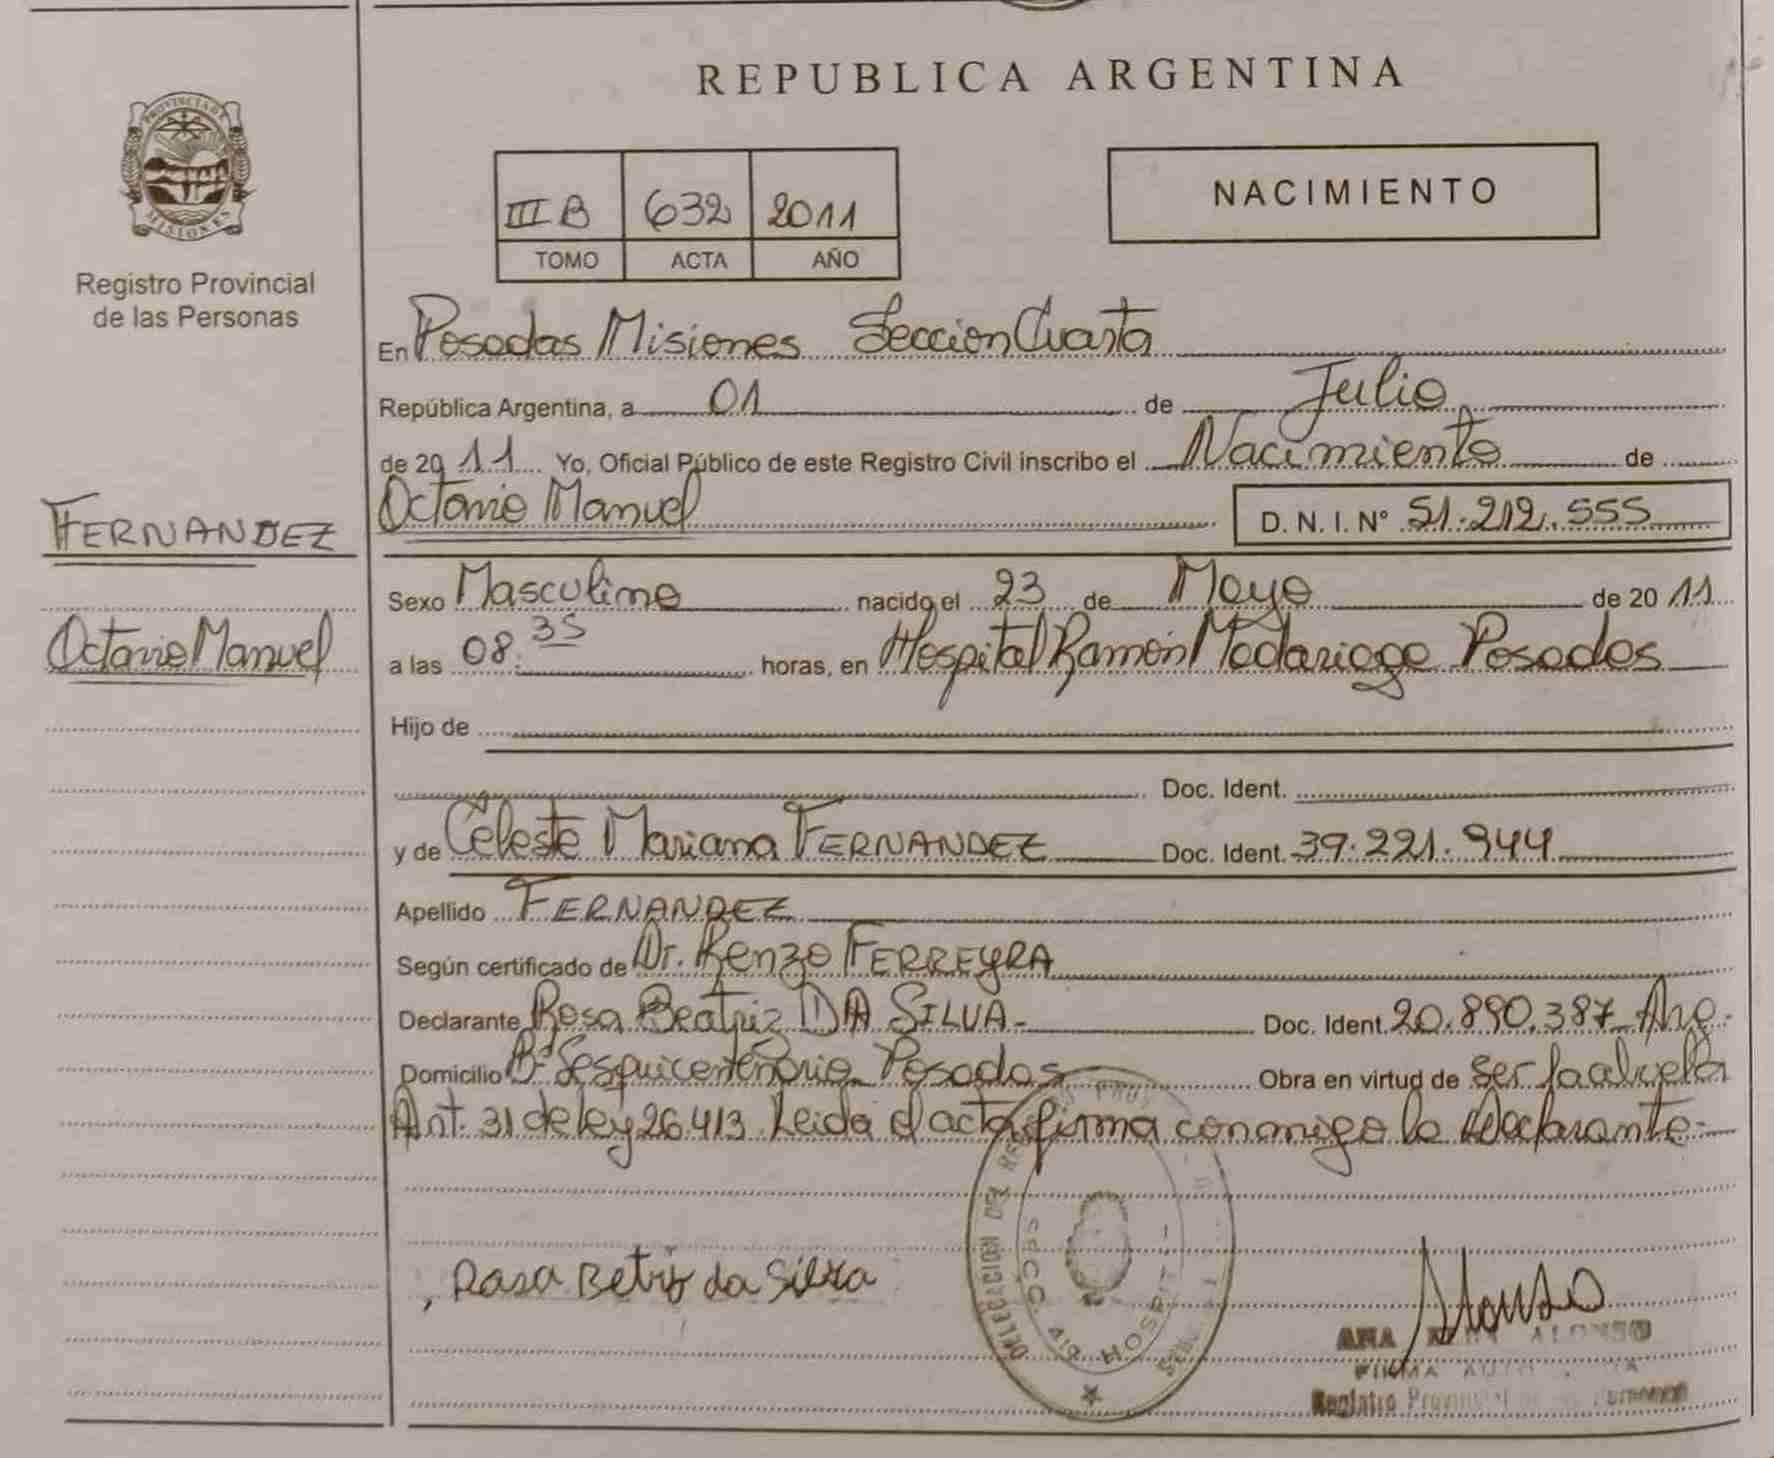 REPUBLICA ARGENTINA
PROVINCIA DE
MISIONES
Registro Provincial
de las Personas
III B 632 2011
TOMO ACTA AÑO
NACIMIENTO
En Posadas Misiones Seccion Cuarta
República Argentina, a 01 de Julio
de 20 11 Yo, Oficial Público de este Registro Civil inscribo el Nacimiento de
Octavio Manuel D. N. I. Nº 51.212.555
FERNANDEZ
Octavio Manuel
Sexo Masculino nacido el 23 de Mayo de 20 11
a las 08:35 horas, en Hospital Ramón Madariaga Posadas
Hijo de
Doc. Ident.
y de Celeste Mariana FERNANDEZ Doc. Ident. 39.221.944
Apellido FERNANDEZ
Según certificado de Dr. Renzo FERREYRA
Declarante Rosa Beatriz DA SILVA.- Doc. Ident. 20.890.387 Arg.
Domicilio Bº Sesquicentenario Posadas Obra en virtud de ser la abuela
Art. 31 de ley 26.413. Leida el acta firma conmigo la declarante.-
Rosa Betriz da Silva
DELEGACION DEL
HOSP.
Alonso
ANA ALONSO
FIRMA
Registro Provincial